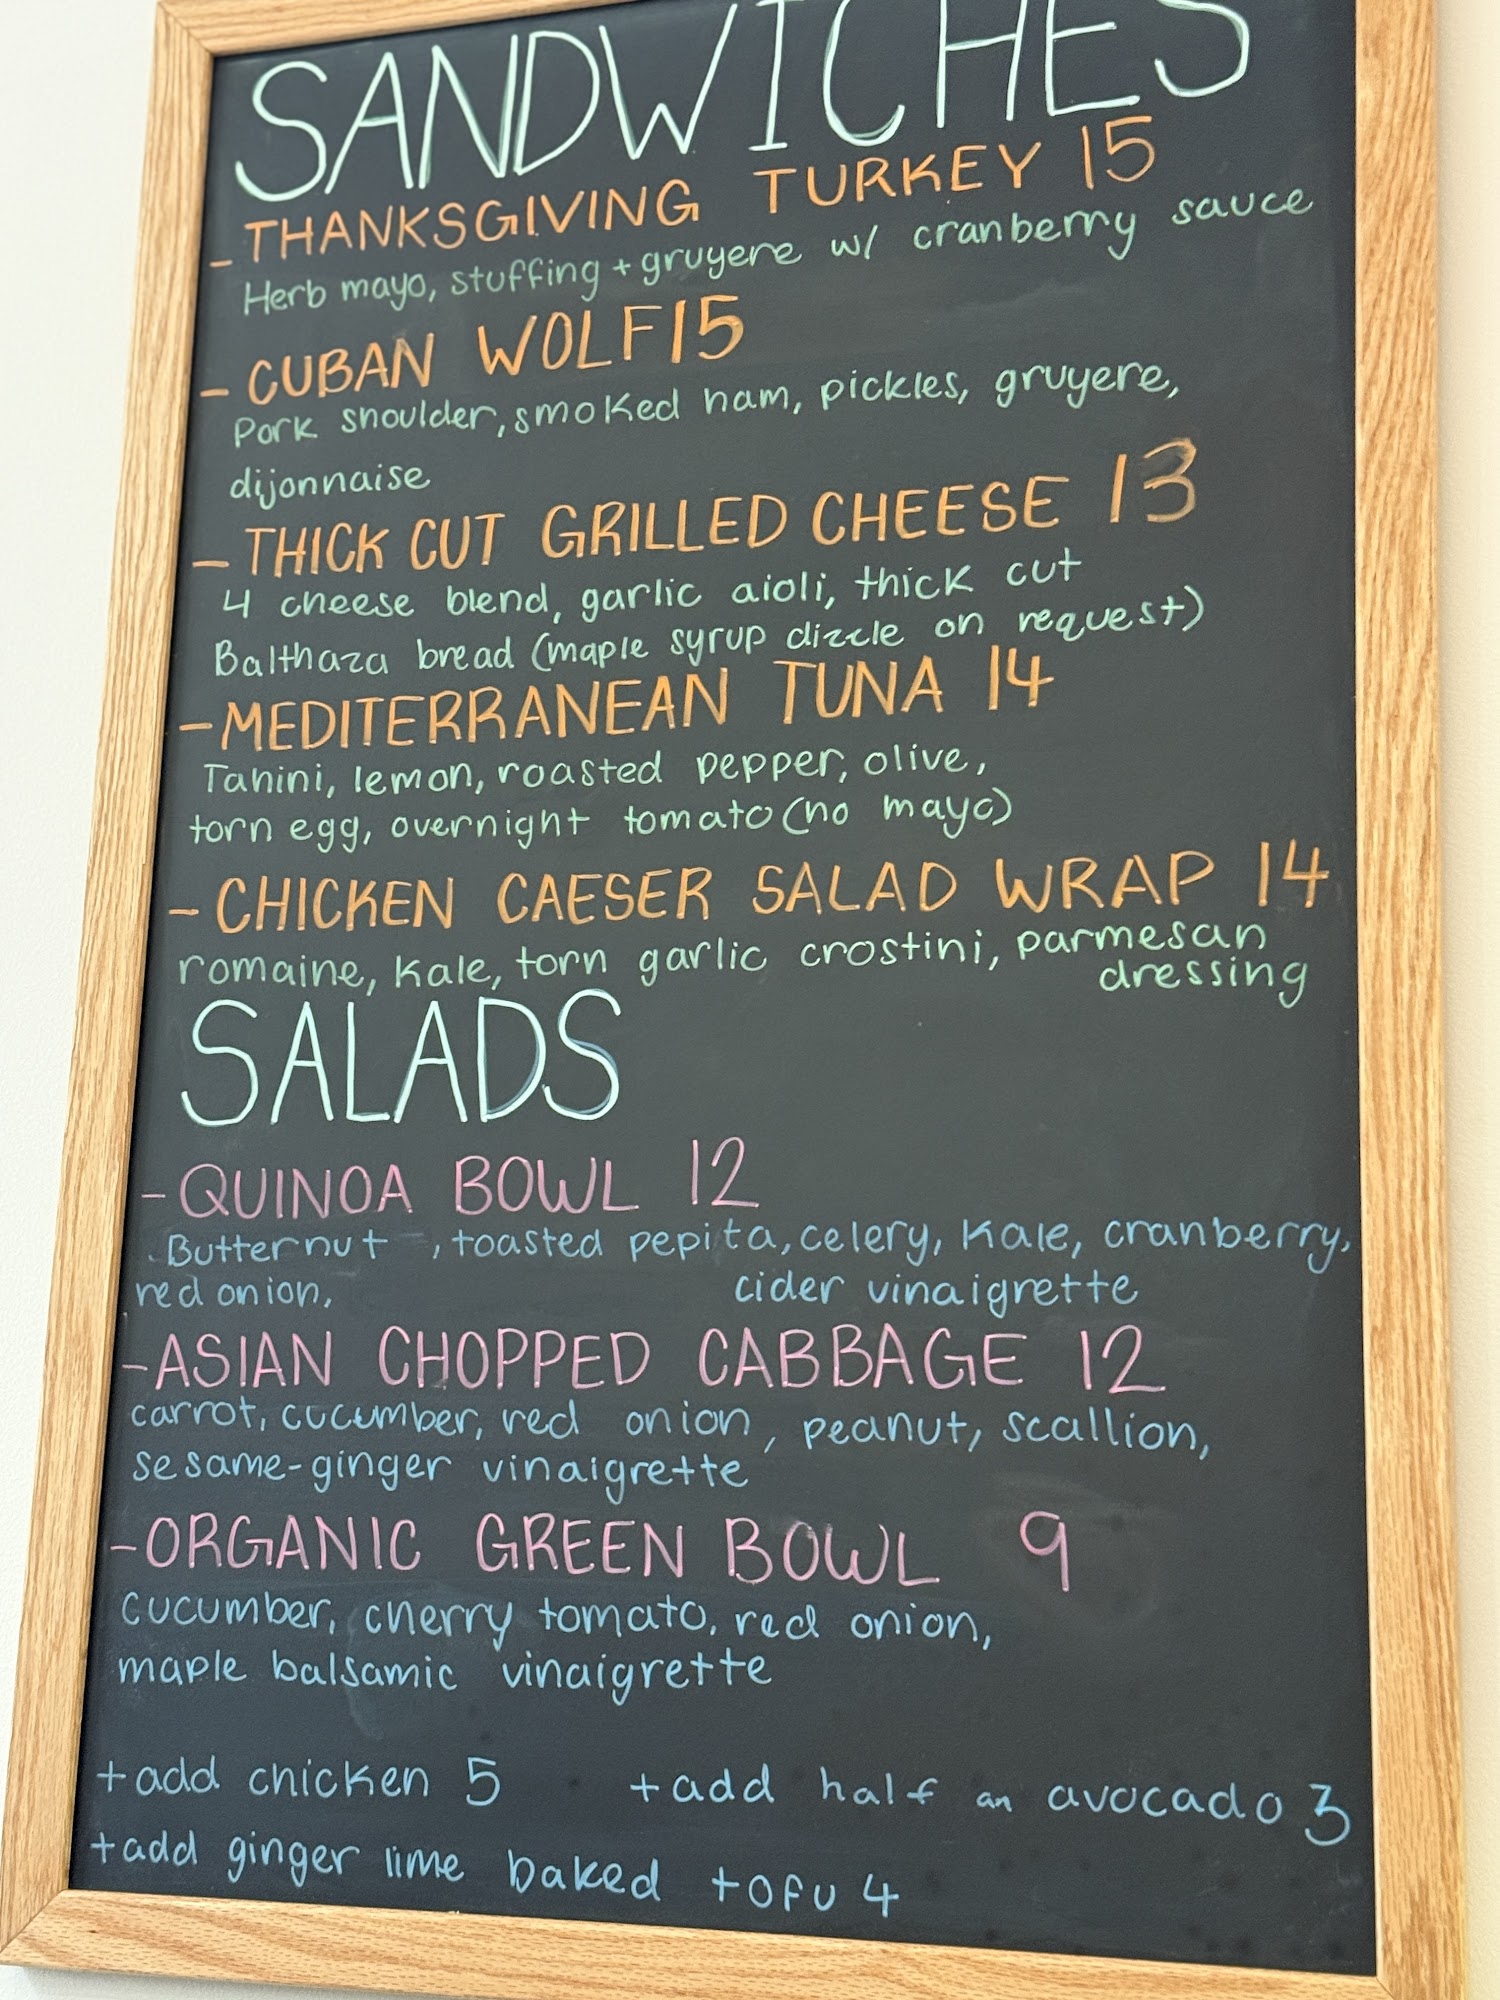 SANDWICHES
- THANKSGIVING TURKEY 15
Herb mayo, stuffing + gruyere w/ cranberry sauce
- CUBAN WOLF 15
Pork shoulder, smoked ham, pickles, gruyere,
dijonnaise
- THICK CUT GRILLED CHEESE 13
4 cheese blend, garlic aioli, thick cut
Balthaza bread (maple syrup dizzle on request)
- MEDITERRANEAN TUNA 14
Tahini, lemon, roasted pepper, olive,
torn egg, overnight tomato (no mayo)
- CHICKEN CAESER SALAD WRAP 14
romaine, kale, torn garlic crostini, parmesan
dressing
SALADS
- QUINOA BOWL 12
Butternut , toasted pepita, celery, kale, cranberry,
red onion, cider vinaigrette
- ASIAN CHOPPED CABBAGE 12
carrot, cucumber, red onion, peanut, scallion,
sesame-ginger vinaigrette
- ORGANIC GREEN BOWL 9
cucumber, cherry tomato, red onion,
maple balsamic vinaigrette
+ add chicken 5 + add half an avocado 3
+ add ginger lime baked tofu 4